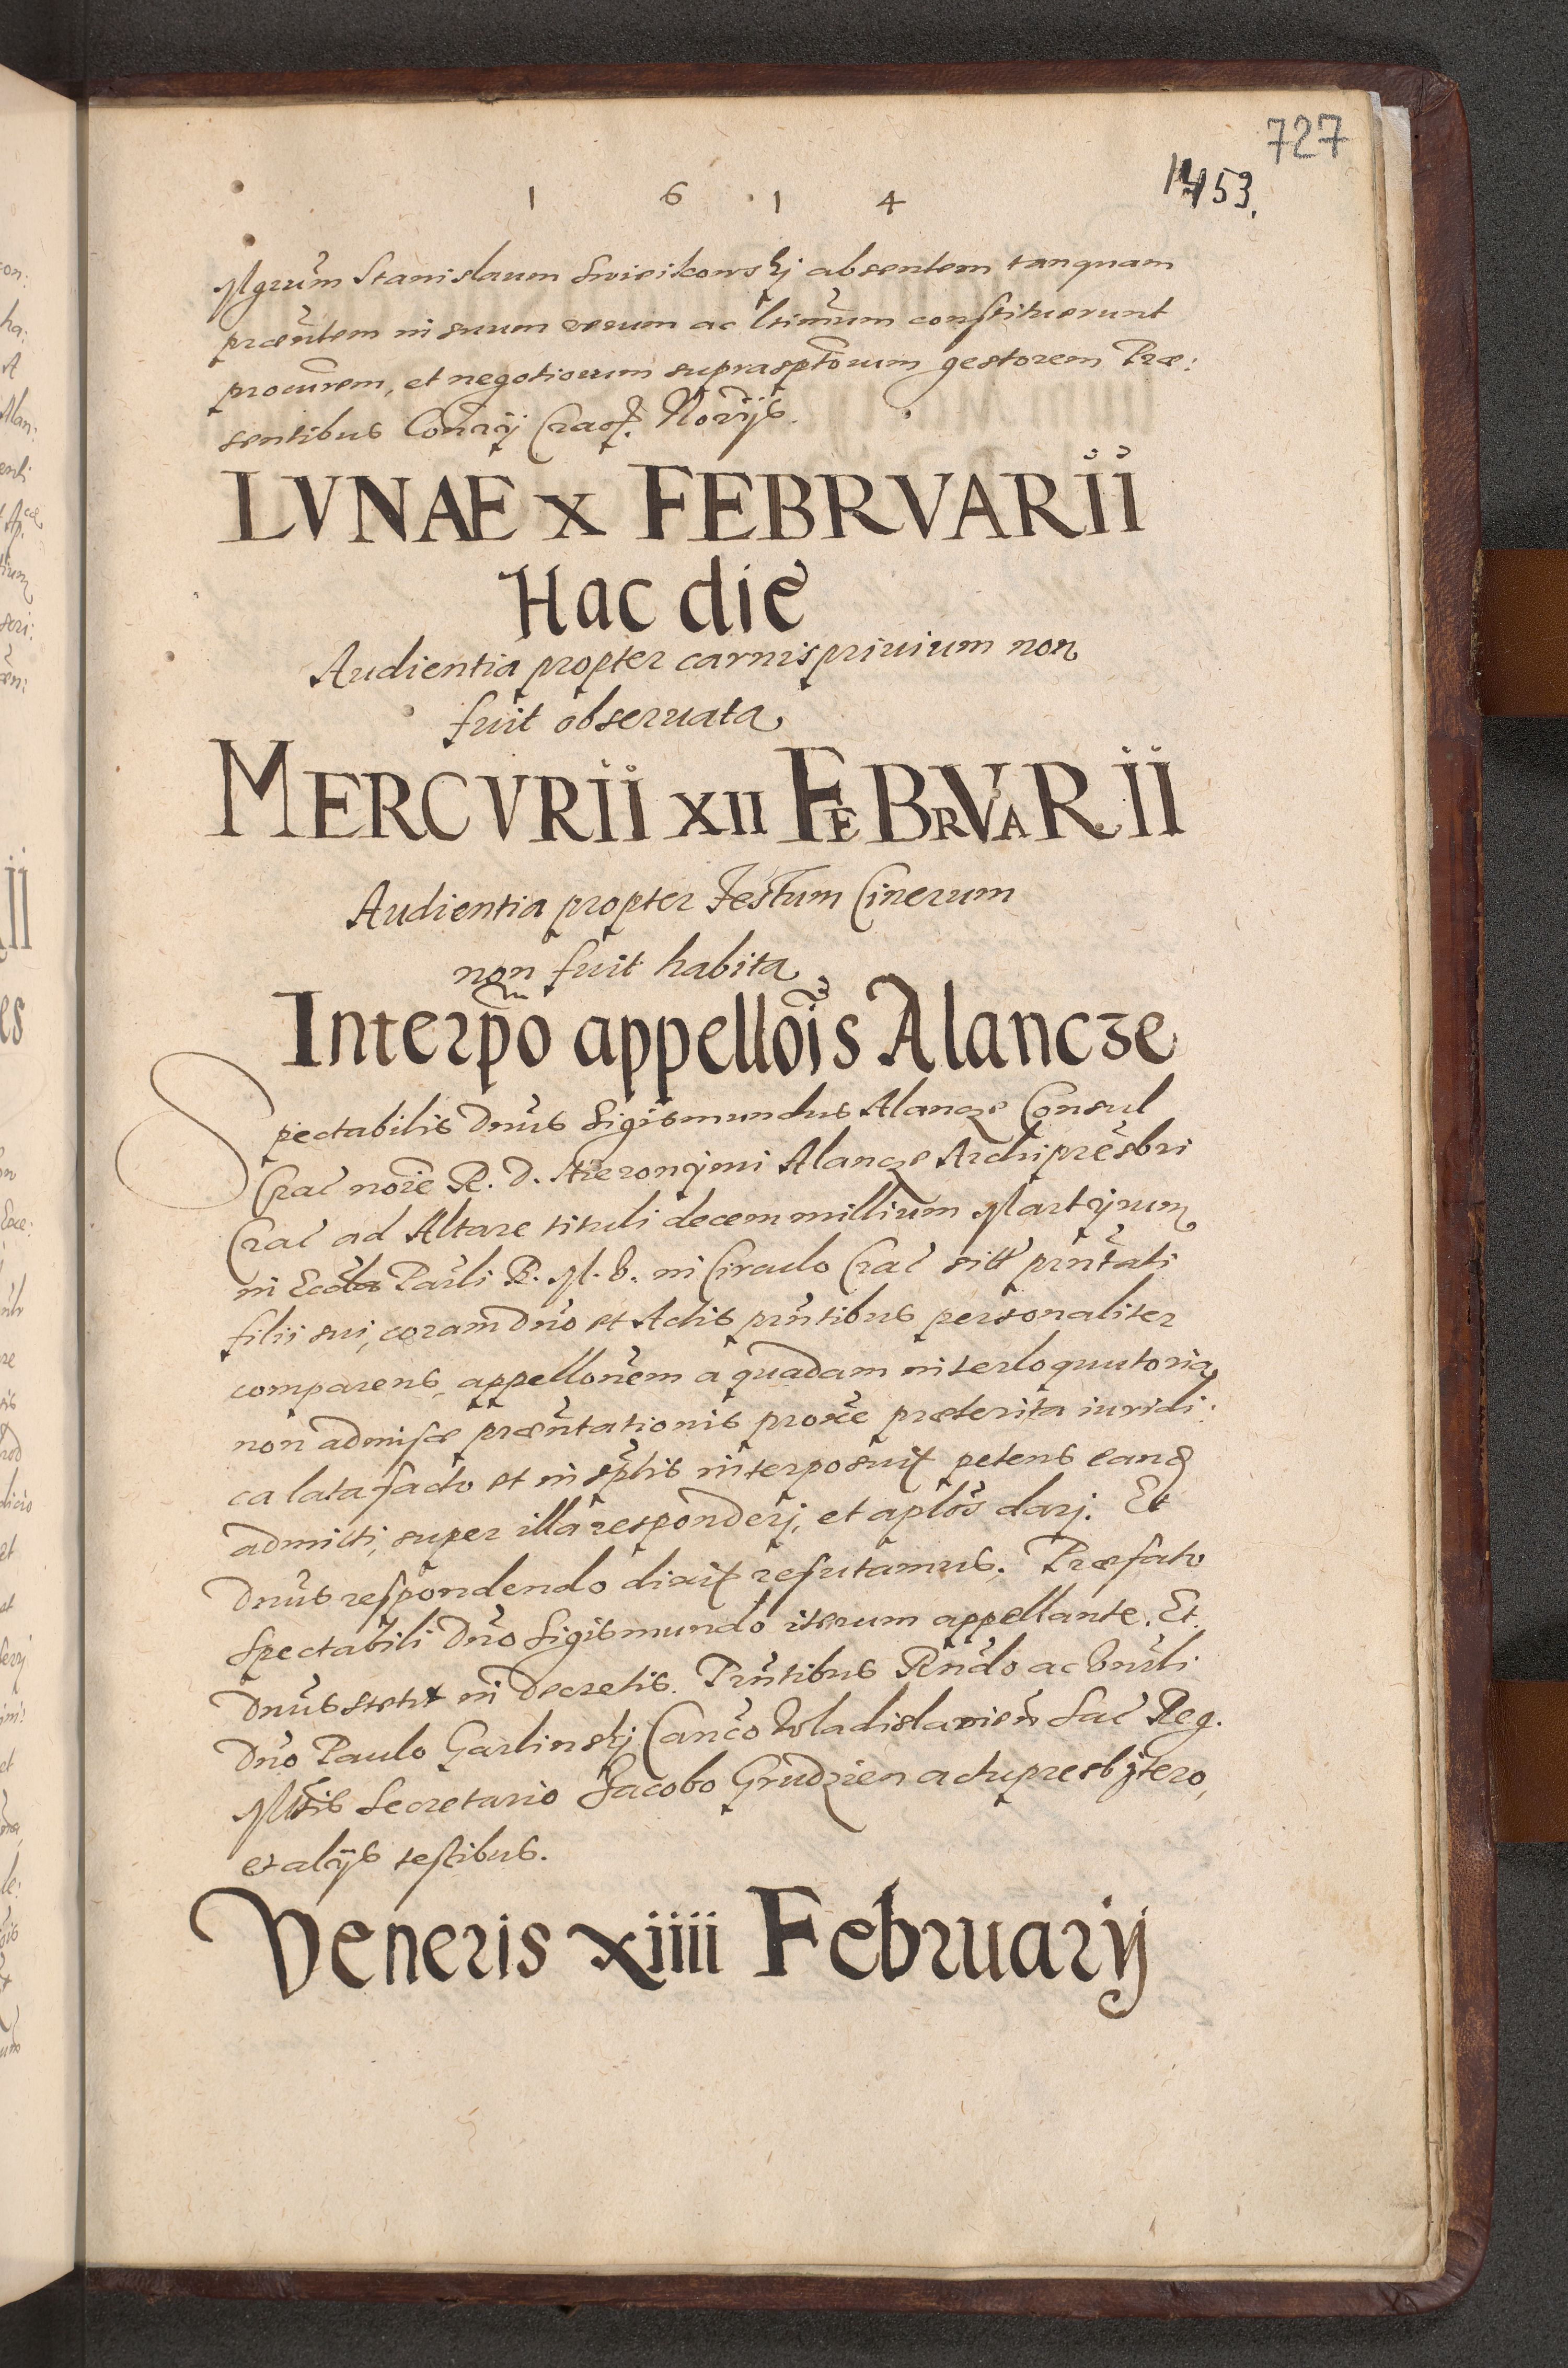 727
1453.
1 6 1 4
Mgrum Stanislaum Swieikowskj absentem tanquam
præntem in suum verum ac ltimum constituerunt
procurem, et negotiorum suprasptorum gestorem Præ:
sentibus Conrij Crac. Norijs.
LVNAE X FEBRVARII
Hac die
Audientia propter carnispriuium non
fuit obseruata
MERCVRII XII FEBRVARII
Audientia propter Festum Cinerum
non fuit habita
Interpo appellois Alancze
Spectabilis Dnus Sigismundus Alancze Consul
Crac noie R. D. Hieronymi Alancze Archipresbri
Crac ad Altare tituli decem millium Martyrum
in Eccla Paʳli B. M. V. in Circulo Crac sitt pnntati
filii sui, coram Dno et Actis pntibus personaliter
comparens, appellonem a quadam interloquutoria
non admissæ præntationis proxe præterita iuridi:
ca lata facto et in sptis interposuit petens eand
admitti, super illa responderj, et aplos darj. Et
Dnus respondendo dixit refutamus. Præfato
Spectabili Dno Sigismundo iterum appellante. Et
Dnus stetit in Decretis. Pntibus Rndo ac Vnrli
Dno Paulo Garlinskj Canco Wladislauien Sac Reg.
Mtis Secretario Jacobo Grudzien actu presbytero,
et alijs testibus.
Veneris xiiii Februarij